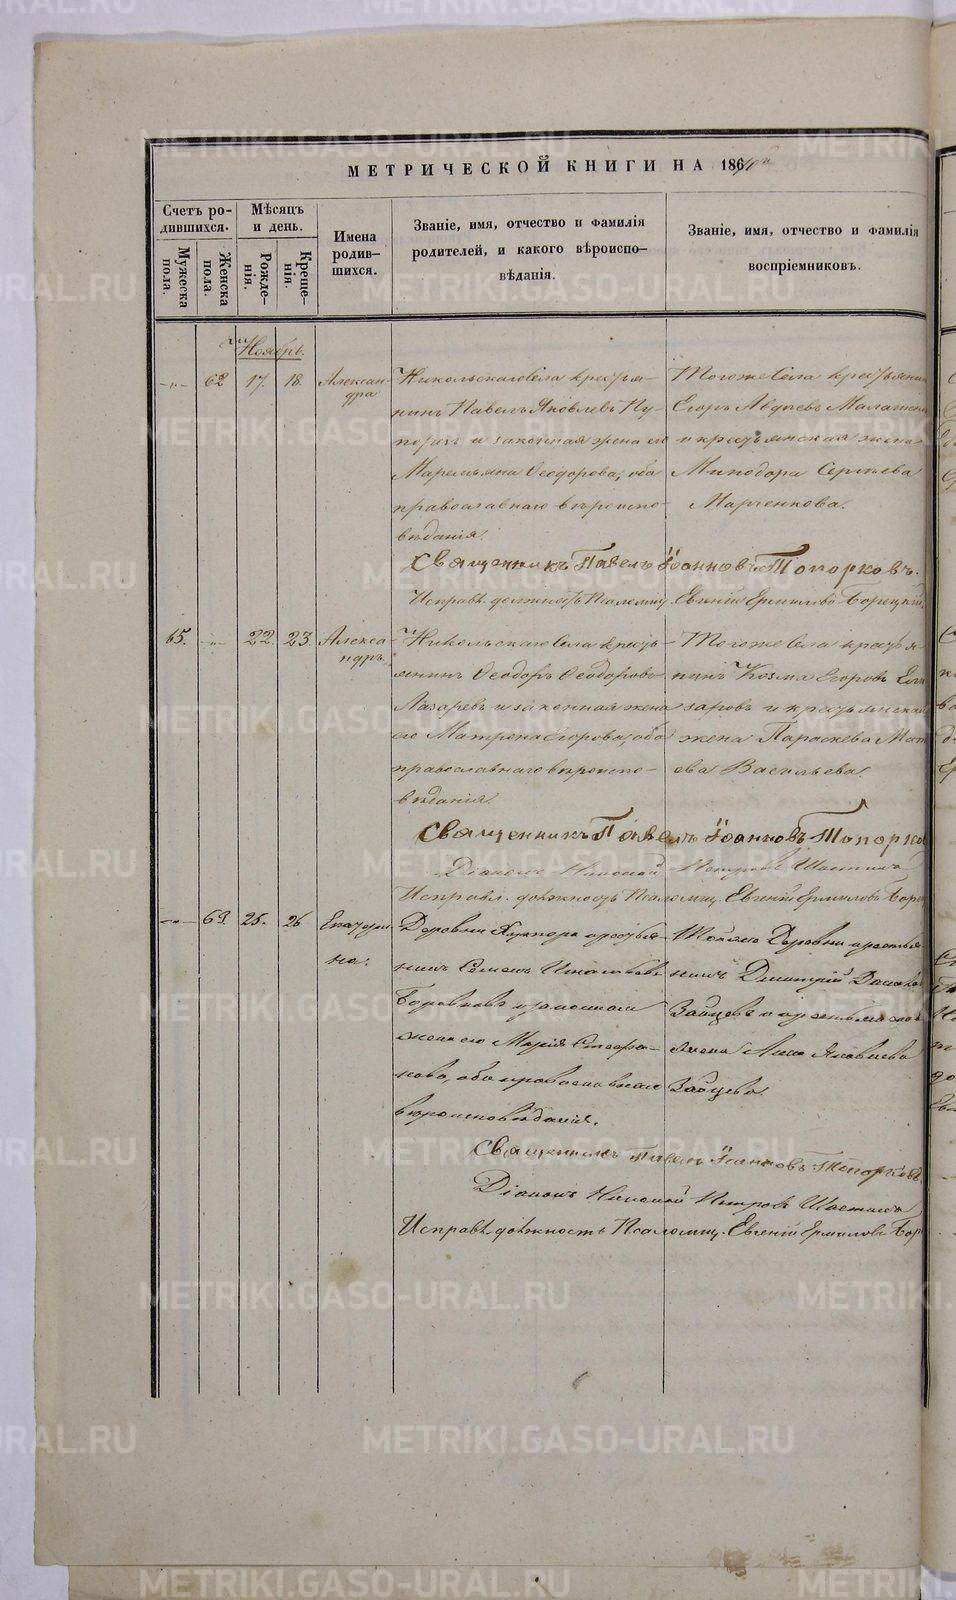 МЕТРИЧЕСКОЙ КНИГИ НА 186
Счетъ ро-
дившихся.
Мужеска
пола.
Женска
пола.
Мѣсяцъ
и день.
Рожде-
нія.
Креще-
нія.
Имена
родив-
шихся.
Званіе, имя, отчество и фамилія
родителей, и какого вѣроиспо-
вѣданія.
Званіе, имя, отчество и фамилія
воспріемниковъ.
Ноябрь.
62 17. 18. Алексан-
дра
Никольскаго Села крестья-
нинъ Павелъ Яковлевъ
и законная жена его
Маремьяна Ѳеодорова, оба
православнаго вѣроиспо-
вѣданія.
Тогоже Села крестьянинъ
Егоръ Авдѣевъ
и крестьянская жена
Минодора Сергѣева
Марченкова.
Священникъ Павелъ Іоанновъ Топорковъ.
Исправл. должность Псаломщ. Евгеній Ермиловъ Борецкій
65. 22. 23. Алекса-
ндръ.
Никольскаго Села кресть-
янинъ Ѳеодоръ Ѳеодоровъ
Лазаревъ и законная жена
его Матрена Егорова, оба
православнаго вѣроиспо-
вѣданія.
Тогоже Села крестья-
нинъ Козма Егоровъ Ели
заровъ и крестьянская
жена Параскева Мат
ева Васильева.
Священникъ Павелъ Іоанновъ Топорков
Діаконъ Николай Петровъ
Исправл. должность Псаломщ. Евгеній Ермиловъ Боре
63. 25. 26 Екатери
на.
Деревни Хутора крестья-
нинъ Семенъ
законная
жена его Марія Стефа-
нова, оба православнаго
вѣроисповѣданія.
Тойже Деревни крестья
нинъ Дмитрій
Зайцевъ и крестьянская
жена Анна Яковлева
Зайцева.
Священникъ Павелъ Іоанновъ Топорковъ
Діаконъ Николай Петровъ
Исправл. должность Псаломщ. Евгеній Ермиловъ Бор
METRIKI.GASO-URAL.RU